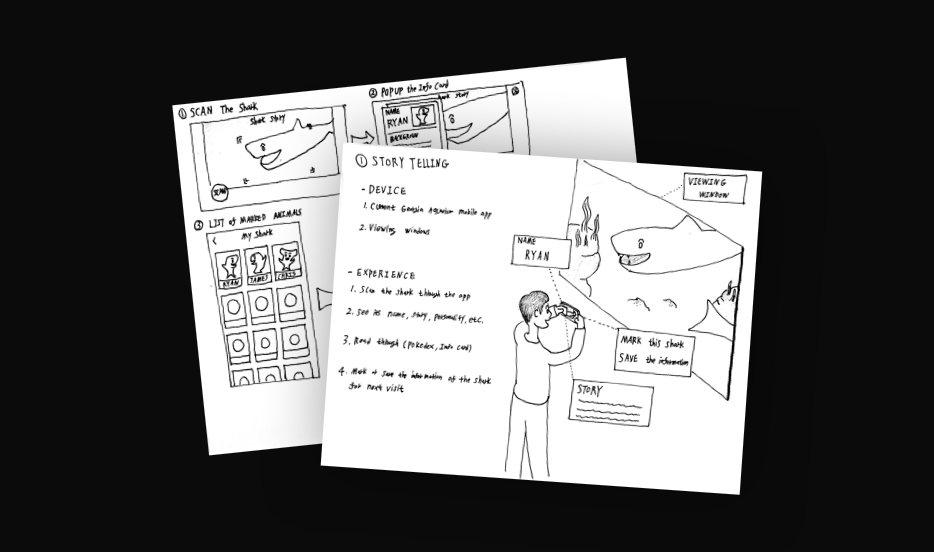 ① SCAN The Shark
Shark Story
SCAN
② POPUP the Info Card
NAME
RYAN
BACKGROUND
③ LIST of MARKED ANIMALS
< My Shark
RYAN
JAMES
CHRIS
① STORY TELLING
- DEVICE
1. Current Georgia Aquarium mobile app
2. Viewing windows
- EXPERIENCE
1. Scan the shark through the app
2. See its name, story, personality, etc.
3. Read through (Pokedex, Info card)
4. Mark or save the information of the shark
for next visit
VIEWING
WINDOW
NAME
RYAN
MARK this shark
SAVE the information
STORY